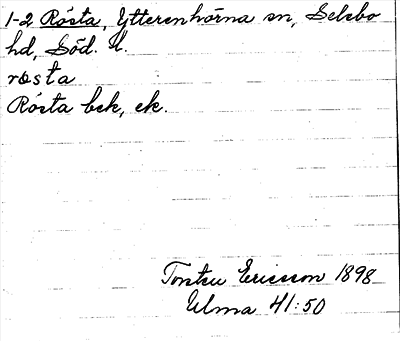 1-2 Rósta, Ytterenhörna sn, Selebo
hd, Söd. l.
rosta
Rósta bek, ek.
Torsten Ericsson 1898
Ulma 41:50